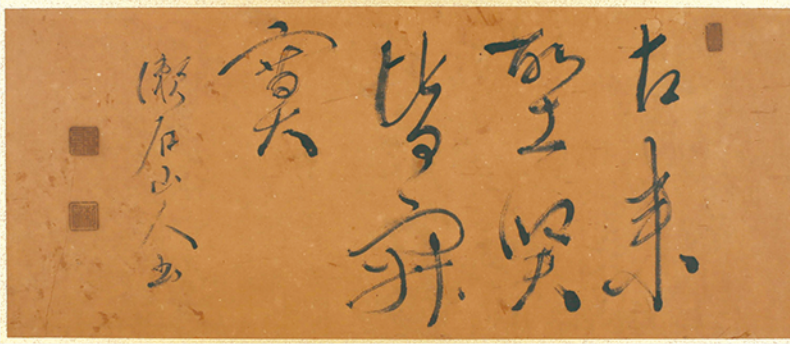 古来
聖賢
皆寂
寞
漱石山人書